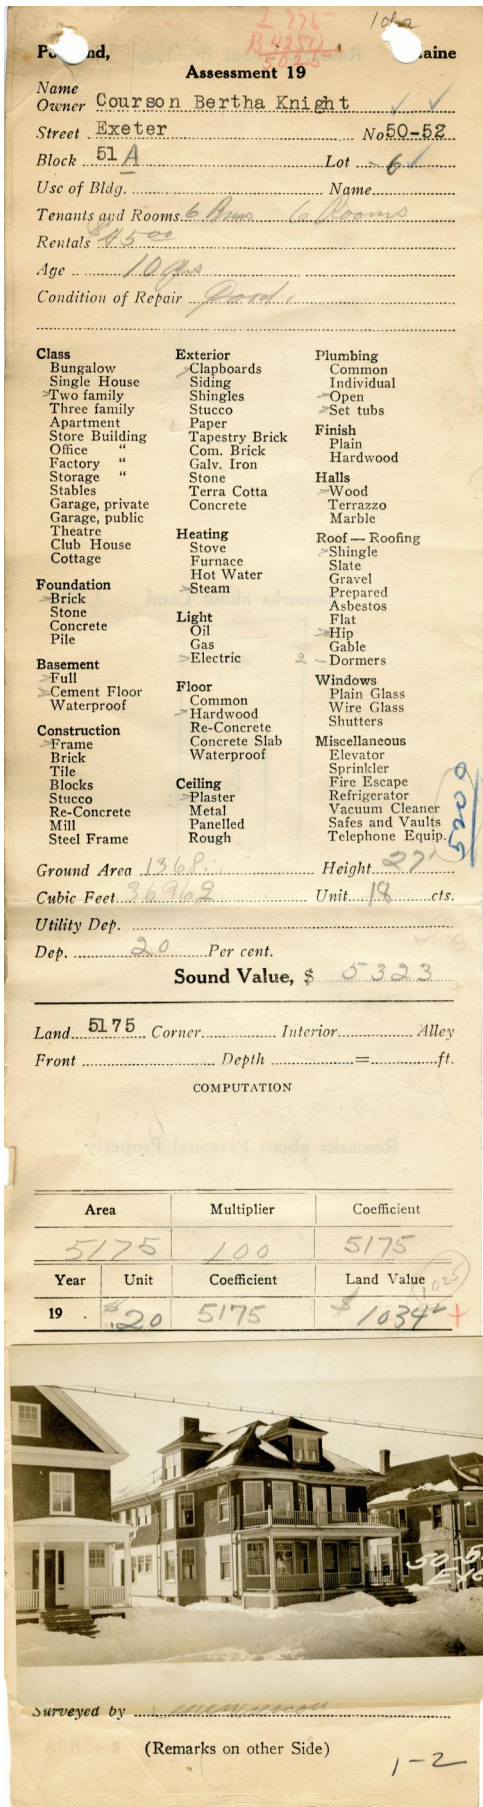 L 775
B 4250
5025
Portland, Maine
Assessment 19
Name
Owner Courson Bertha Knight
Street Exeter No 50-52
Block 51 A Lot 6
Use of Bldg. Name
Tenants and Rooms 6 Rms 6 Rooms
Rentals $45 00
Age 10 yrs
Condition of Repair Good.
Class
Bungalow
Single House
Two family
Three family
Apartment
Store Building
Office "
Factory "
Storage "
Stables
Garage, private
Garage, public
Theatre
Club House
Cottage
Foundation
Brick
Stone
Concrete
Pile
Basement
Full
Cement Floor
Waterproof
Construction
Frame
Brick
Tile
Blocks
Stucco
Re-Concrete
Mill
Steel Frame
Exterior
Clapboards
Siding
Shingles
Stucco
Paper
Tapestry Brick
Com. Brick
Galv. Iron
Stone
Terra Cotta
Concrete
Heating
Stove
Furnace
Hot Water
Steam
Light
Oil
Gas
Electric
Floor
Common
Hardwood
Re-Concrete
Concrete Slab
Waterproof
Ceiling
Plaster
Metal
Panelled
Rough
Plumbing
Common
Individual
Open
Set tubs
Finish
Plain
Hardwood
Halls
Wood
Terrazzo
Marble
Roof — Roofing
Shingle
Slate
Gravel
Prepared
Asbestos
Flat
Hip
Gable
2 - Dormers
Windows
Plain Glass
Wire Glass
Shutters
Miscellaneous
Elevator
Sprinkler
Fire Escape
Refrigerator
Vacuum Cleaner
Safes and Vaults
Telephone Equip.
Ground Area 1368. Height 27'
Cubic Feet 36962 Unit 18 cts.
Utility Dep.
Dep. 20 Per cent.
Sound Value, $ 5323
Land 5175 Corner Interior Alley
Front Depth = ft.
COMPUTATION
Area Multiplier Coefficient
5175 100 5175
Year Unit Coefficient Land Value 1025
19 . $.20 5175 $1034 +
50-5
Surveyed by
(Remarks on other Side)
1-2